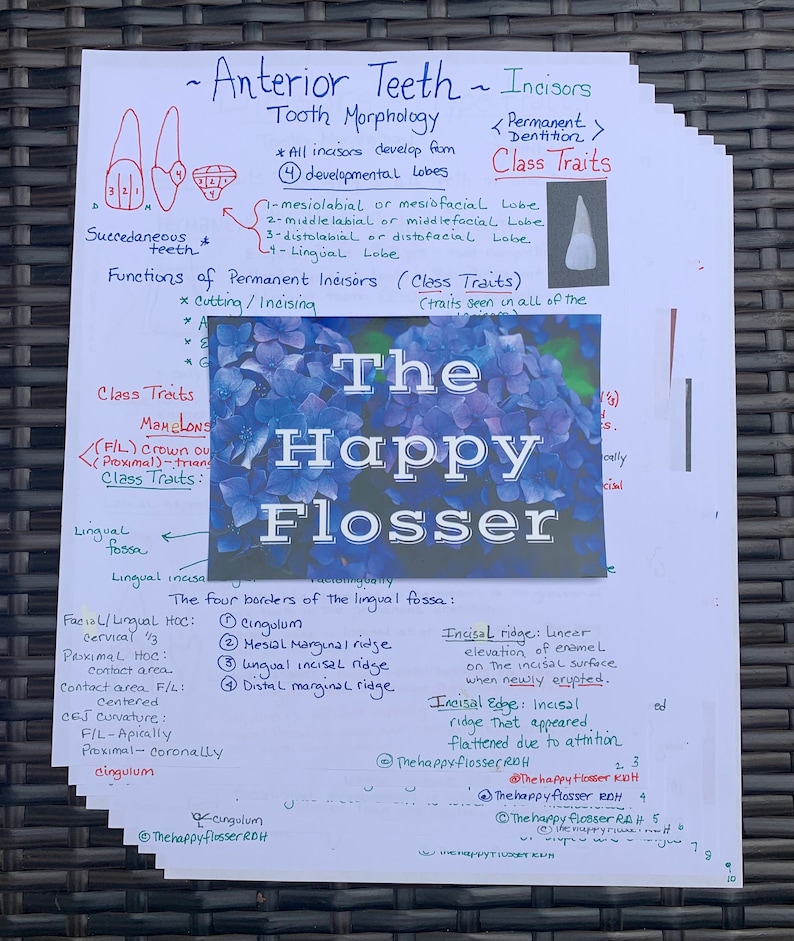 ~ Anterior Teeth ~ Incisors
Tooth Morphology
< Permanent
Dentition >
* All incisors develop from
④ developmental Lobes
Class Traits
3 2 1
4
3 2 1
4
D M
1 - mesiolabial or mesiofacial Lobe
2 - middle labial or middlefacial Lobe
3 - distolabial or distofacial Lobe
4 - Lingual Lobe
Succedaneous *
teeth
Functions of Permanent Incisors (Class Traits)
* Cutting / Incising
(traits seen in all of the
* A
* E
* G
The
Happy
Flosser
Class Traits
1/3)
Mamelons
(F/L) Crown ou
(Proximal) - triang
Class Traits:
cally
cisal
Lingual
fossa
Lingual incisa
faciolingually
The four borders of the lingual fossa:
Facial/Lingual HOC:
cervical 1/3
Proximal HOC:
contact area
Contact area F/L:
centered
CEJ Curvature:
F/L - Apically
Proximal - coronally
cingulum
① Cingulum
② Mesial Marginal ridge
③ Lingual incisal ridge
④ Distal marginal ridge
Incisal ridge: Linear
elevation of enamel
on the incisal surface
when newly erupted.
Incisal Edge: Incisal
ridge that appeared
flattened due to attrition
ed
© ThehappyflosserRDH 2 3
© ThehappyflosserRDH
© Thehappyflosser RDH 4
© Thehappyflosser RDH 5
© Thehappyflosser RDH 6
cingulum
© ThehappyflosserRDH
7
© ThehappyflosserRDH
8
9
10